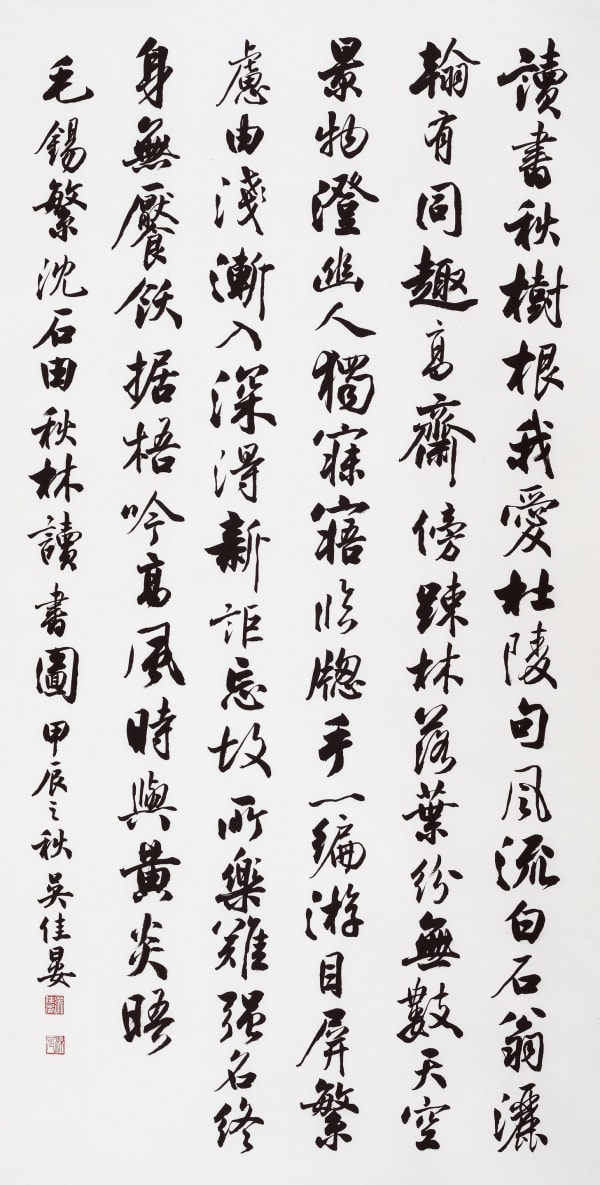 讀書秋樹根我愛杜陵句風流白石翁灑
翰有同趣高齋傍踈林落葉紛無數天空
景物澄幽人獨寐寤臨牕手一編游目屏繁
慮由淺漸入深得新詎忘故所樂難强名終
身無饜飫据梧吟高風時與黃炎晤
毛錫繁沈石由秋林讀書圖甲辰之秋吳佳晏